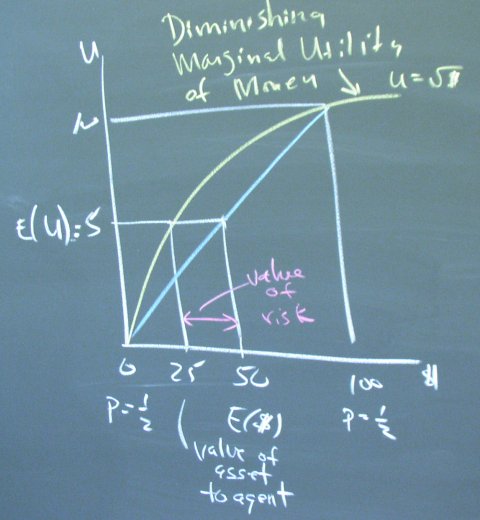 Diminishing
Marginal Utility
of Money
U = √$
U
10
E(U)=5
value
of
risk
0 25 50 100 $
P=½ E($) P=½
value of
asset
to agent